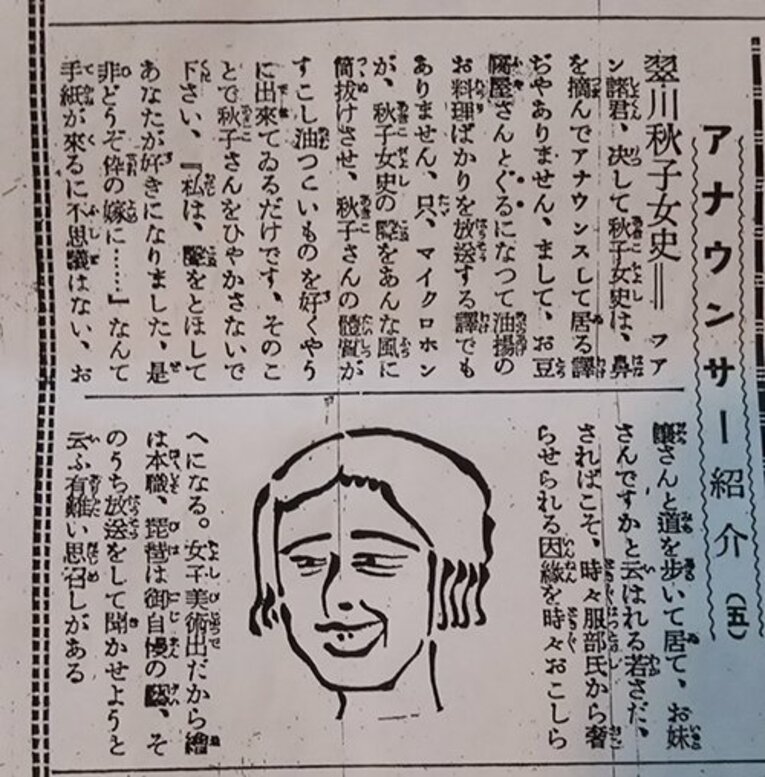 アナウンサー紹介（五）
翠川秋子女史＝ファ
ン諸君、決して秋子女史は、鼻
を摘んでアナウンスして居る譯
ぢやありません、まして、お豆
腐屋さんとぐるになつて油揚の
お料理ばかりを放送する譯でも
ありません、只、マイクロホン
が、秋子女史の聲をあんな風に
筒拔けさせ、秋子さんの體質が
すこし油つこいものを好くやう
に出來てゐるだけです、そのこ
とで秋子さんをひやかさないで
下さい、『私は、聲をとほして
あなたが好きになりました、是
非どうぞ伜の嫁に……』なんて
手紙が來るに不思議はない、お
孃さんと道を歩いて居て、お妹
さんですかと云はれる若さだ、
さればこそ、時々服部氏から奢
らせられる因緣を時々おこしら
へになる。女子美術出だから繪
は本職、琵琶は御自慢の藝、そ
のうち放送をして聞かせようと
云ふ有難い思召しがある